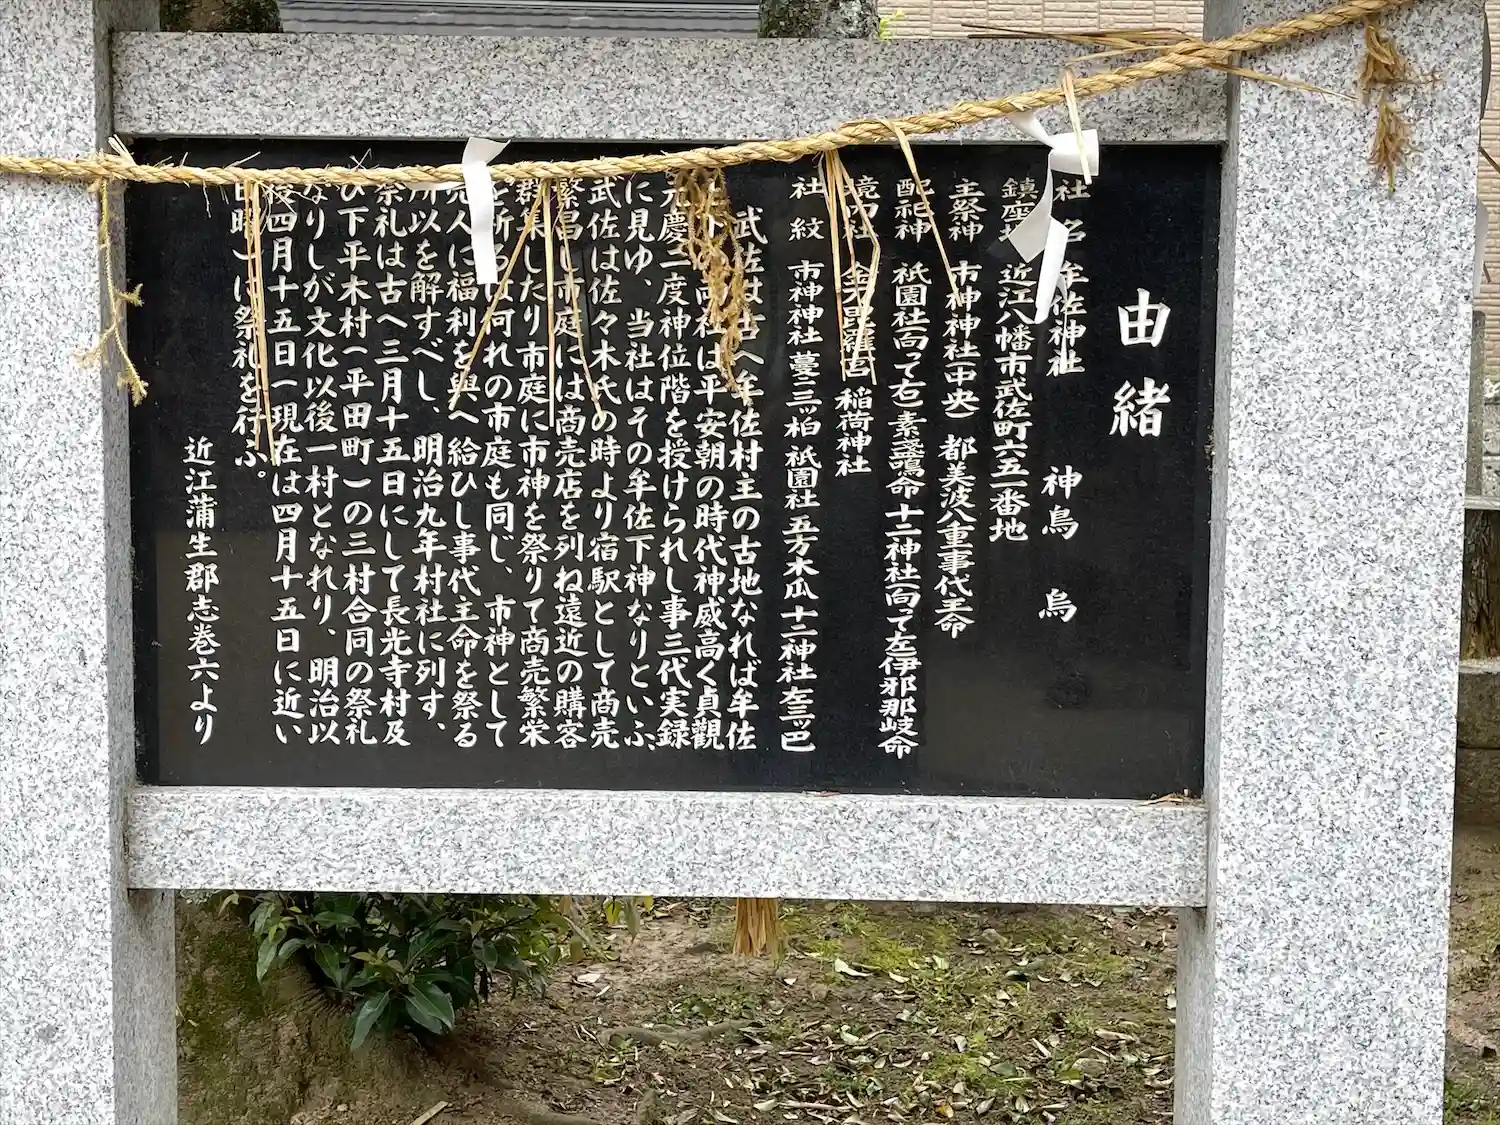 由緒
社名 牟佐神社 神鳥 烏
鎮座地 近江八幡市武佐町六五一番地
主祭神 市神神社(中央) 都美波八重事代主命
配祀神 祇園社(向って右)素盞嗚命十二神社向って左伊邪那岐命
境内社 金刀毘羅宮 稲荷神社
社紋 市神神社 蔓三ッ柏 祇園社 五方木瓜 十二神社 左三ッ巴
武佐は古へ牟佐村主の古地なれば牟佐
上下の両社は平安朝の時代神威高く貞観
元慶二度神位階を授けられし事三代実録
に見ゆ、当社はその牟佐下神なりといふ、
武佐は佐々木氏の時より宿駅として商売
繁昌し市庭には商売店を列ね遠近の購客
群集したり市庭に市神を祭りて商売繁栄
を祈るは何れの市庭も同じ、市神として
売人に福利を與へ給ひし事代主命を祭る
所以を解すべし、明治九年村社に列す、
祭礼は古へ三月十五日にして長光寺村及
び下平木村(平田町)の三村合同の祭礼
なりしが文化以後一村となれり、明治以
後四月十五日(現在は四月十五日に近い
日曜)に祭礼を行ふ。
近江蒲生郡志巻六より